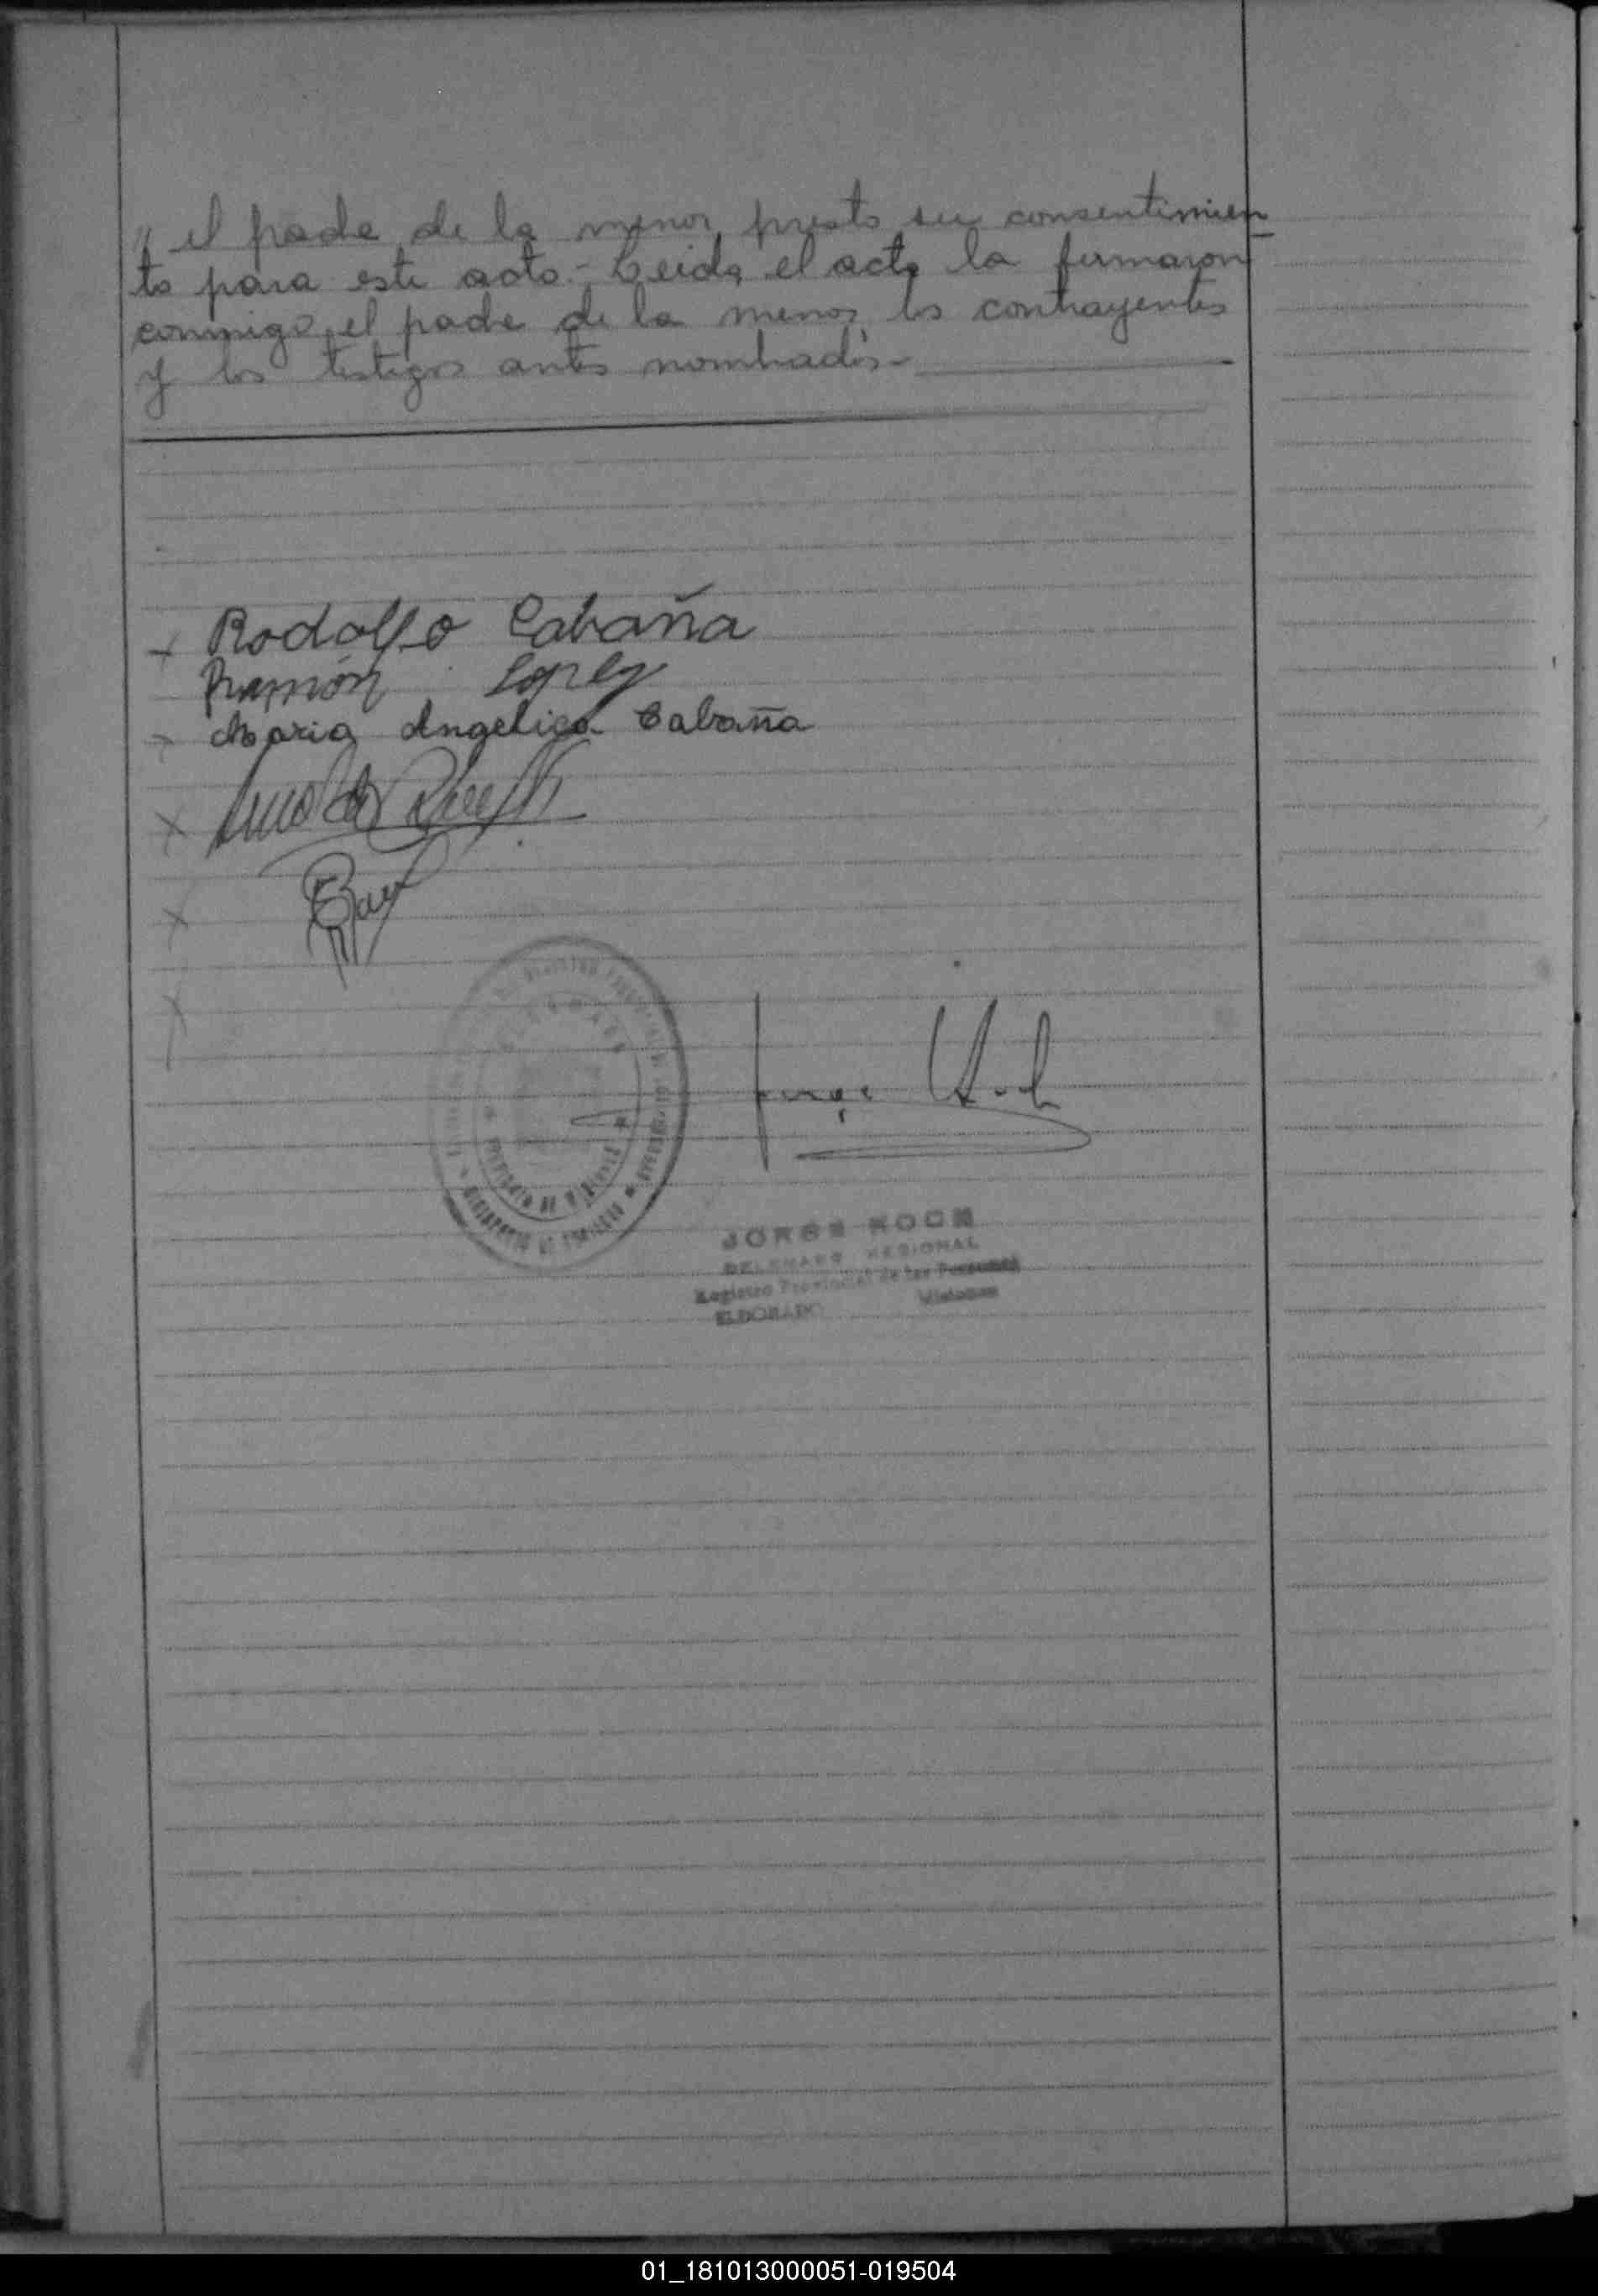 " el padre de la menor, presto su consentimien
to para este acto.- Leida el acta la firmaron
conmigo, el padre de la menor, los contrayentes
y los testigos antes nombrados.-
Rodolfo Cabaña
Ramón Lopez
Maria Angelica Cabaña
Jorge Koch
JORGE KOCH
DELEGADO REGIONAL
Registro Provincial de las Personas
ELDORADO Misiones
01_181013000051-019504